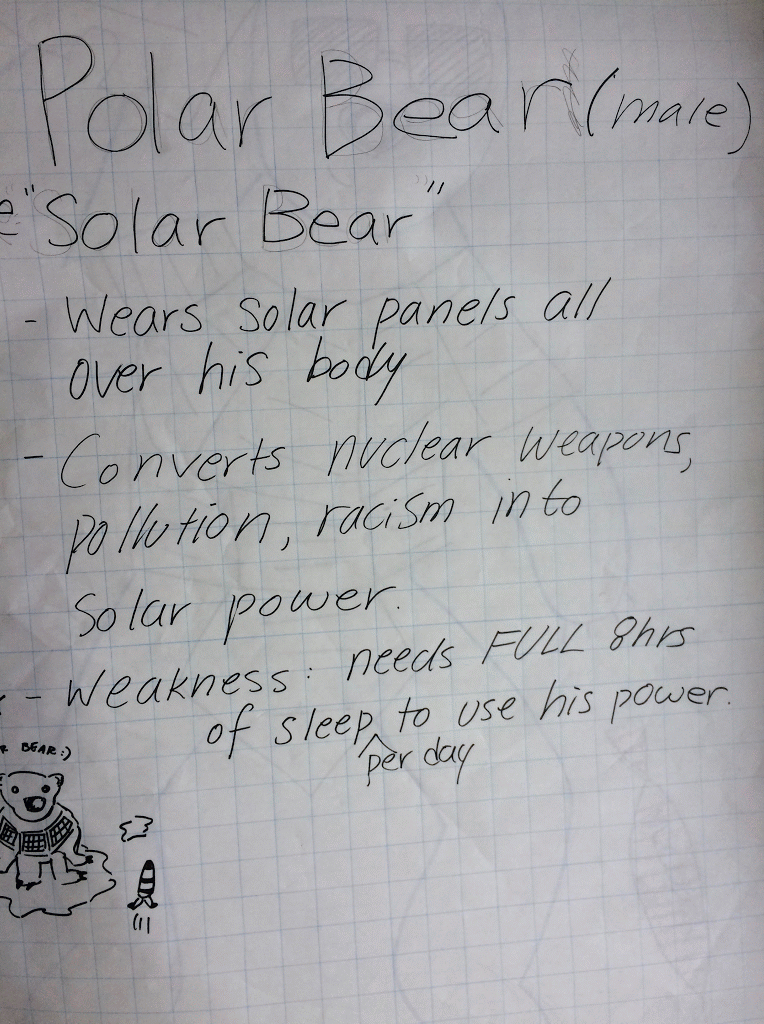 Polar Bear (male)
e "Solar Bear"
- Wears solar panels all
over his body
- Converts nuclear weapons,
pollution, racism into
solar power.
- Weakness: needs FULL 8hrs
of sleep to use his power.
per day
R BEAR :)